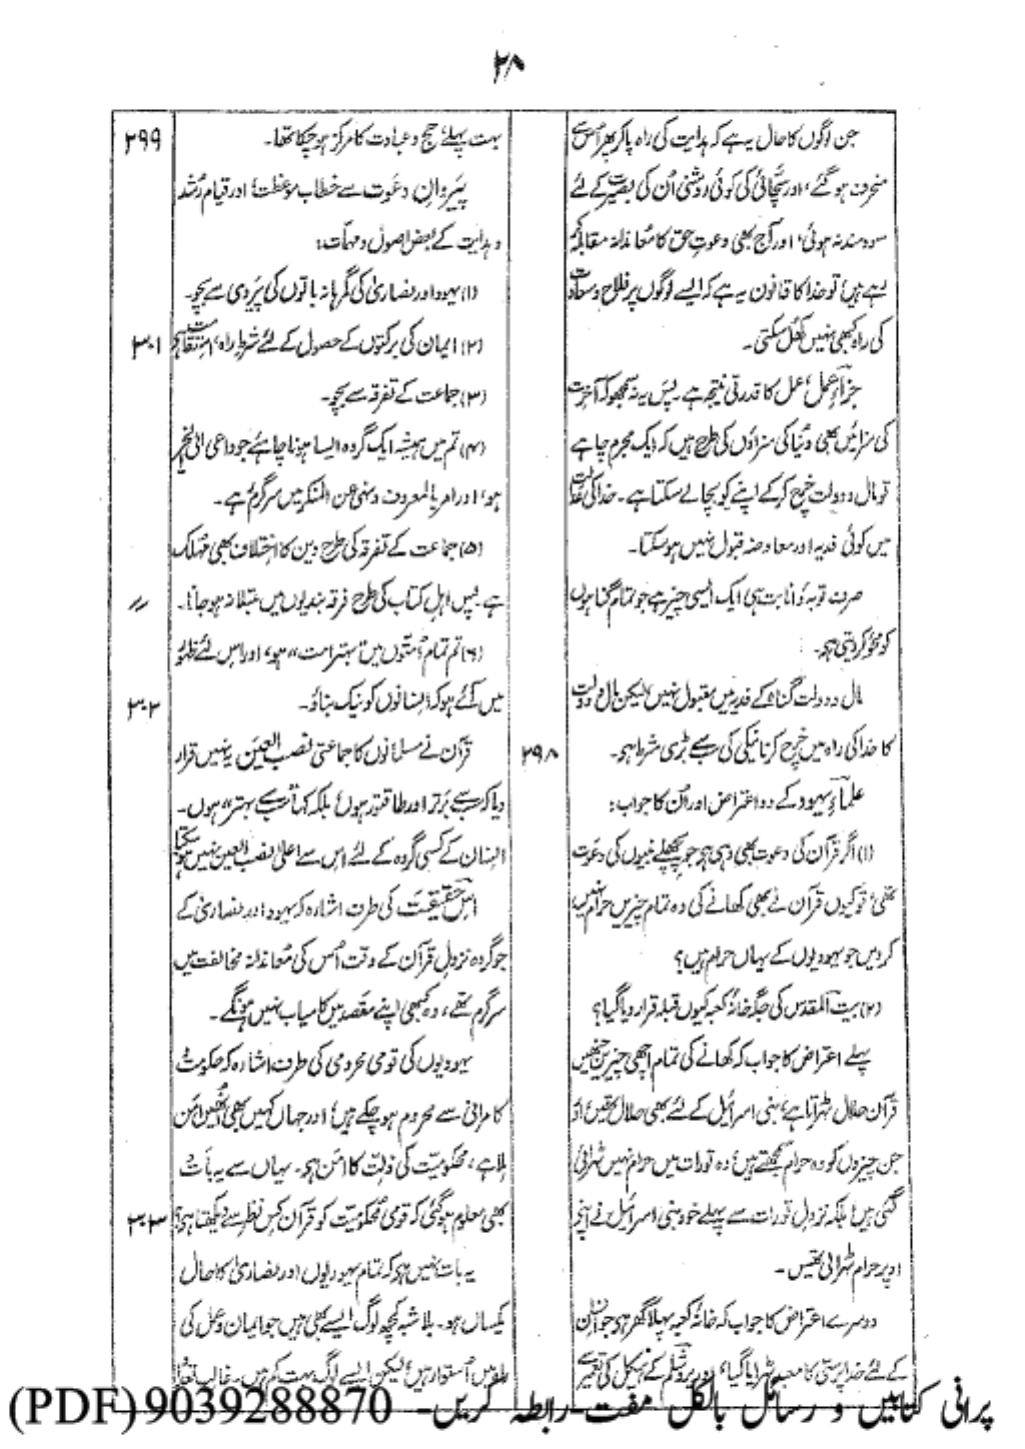 ۲۸
جن لوگوں کا حال یہ ہے کہ ہدایت کی راہ پا کر پھر اُس سے
منحرف ہو گئے، اور سچّائی کی کوئی روشنی اُن کی بصیرت کے لئے
سود مند نہ ہوئی، اور آج بھی دعوتِ حق کا معاندانہ مقابلہ کر
رہے ہیں تو خدا کا قانون یہ ہے کہ ایسے لوگوں پر فلاح و سعادت
کی راہ کبھی نہیں کھل سکتی۔
جزاءِ عمل، عمل کا قدرتی نتیجہ ہے۔ پس یہ نہ سمجھو کہ آخرت
کی سزائیں بھی دنیا کی سزاؤں کی طرح ہیں کہ ایک مجرم چاہے
تو مال و دولت خرچ کرکے اپنے کو بچا لے سکتا ہے۔ خدا کی عدالت
میں کوئی فدیہ اور معاوضہ قبول نہیں ہو سکتا۔
صرف توبہ و انابت ہی ایک ایسی چیز ہے جو تمام گناہوں
کو محو کر دیتی ہے۔
مال و دولت گناہ کے فدیہ میں مقبول نہیں، لیکن مال و دولت
کا خدا کی راہ میں خرچ کرنا نیکی کی سب سے بڑی شرط ہے۔ ۲۹۸
علماءِ یہود کے دو اعتراض اور اُن کا جواب:
(۱) اگر قرآن کی دعوت بھی وہی ہے جو پچھلے نبیوں کی دعوت
تھی، تو کیوں قرآن نے بھی کھانے کی وہ تمام چیزیں حرام نہیں
کر دیں جو یہودیوں کے یہاں حرام ہیں؟
(۲) بیت المقدس کی جگہ خانۂ کعبہ کیوں قبلہ قرار دیا گیا؟
پہلے اعتراض کا جواب کہ کھانے کی تمام اچھی چیزیں جنہیں
قرآن حلال ٹہراتا ہے، بنی اسرائیل کے لئے بھی حلال تھیں، اور
جن چیزوں کو وہ حرام سمجھتے ہیں، وہ تورات میں حرام نہیں ٹہرائی
گئی ہیں، بلکہ نزولِ تورات سے پہلے خود بنی اسرائیل نے اپنے
اوپر حرام ٹہرا لی تھیں۔
دوسرے اعتراض کا جواب کہ خانۂ کعبہ پہلا گھر ہے جو انسان
کے لئے خدا پرستی کا معبد ٹہرایا گیا، اور یروشلم کے ہیکل کی تعمیر سے
بہت پہلے حج و عبادت کا مرکز ہو چکا تھا۔ ۲۹۹
پیروانِ دعوت سے خطاب موعظت، اور قیامِ رُشد
و ہدایت کے بعض اصول و مہمّات:
(۱) یہود اور نصاریٰ کی گمراہانہ باتوں کی پیروی سے بچو۔
(۲) ایمان کی برکتوں کے حصول کے لئے شرطِ راہ، استقامت ہے ۳۰۱
(۳) جماعت کے تفرقہ سے بچو۔
(۴) تم میں ہمیشہ ایک گروہ ایسا ہونا چاہئے جو داعی الی الخیر
ہو، اور امر بالمعروف و نہی عن المنکر میں سرگرم رہے۔
(۵) جماعت کے تفرقہ کی طرح دین کا اختلاف بھی مہلک
ہے۔ پس اہلِ کتاب کی طرح فرقہ بندیوں میں مبتلا نہ ہو جانا۔ ״
(۶) تم تمام اُمتوں میں "بہتر امت" ہو، اور اس لئے ظہور
میں آئے ہو کہ انسانوں کو نیک بناؤ۔ ۳۰۲
قرآن نے مسلمانوں کا جماعتی نصب العین یہ نہیں قرار
دیا کہ سب سے برتر اور طاقتور ہوں، بلکہ کہا "سب سے بہتر" ہوں۔
انسان کے کسی گروہ کے لئے اس سے اعلیٰ نصب العین نہیں ہو سکتا
اس حقیقت کی طرف اشارہ کہ یہود اور نصاریٰ کے
جو گروہ نزولِ قرآن کے وقت اُس کی معاندانہ مخالفت میں
سرگرم تھے، وہ کبھی اپنے مقصد میں کامیاب نہیں ہونگے۔
یہودیوں کی قومی محرومی کی طرف اشارہ کہ حکومت و
کامرانی سے محروم ہو چکے ہیں، اور جہاں کہیں بھی اُنھیں امن
ملا ہے، محکومیت کی ذلت کا امن ہے۔ یہاں سے یہ بات
بھی معلوم ہو گئی کہ قومی محکومیت کو قرآن کس نظر سے دیکھتا ہے؟ ۳۰۳
یہ بات نہیں ہے کہ تمام یہودیوں اور نصاریٰ کا حال
یکساں ہو۔ بلاشبہ کچھ لوگ ایسے بھی ہیں جو ایمان و عمل کی
راہ میں اُستوار ہیں، لیکن ایسے لوگ بہت کم ہیں۔ غالب تعداد
پرانی کتابیں و رسائل بالکل مفت۔ رابطہ کریں۔ 9039288870 (PDF)